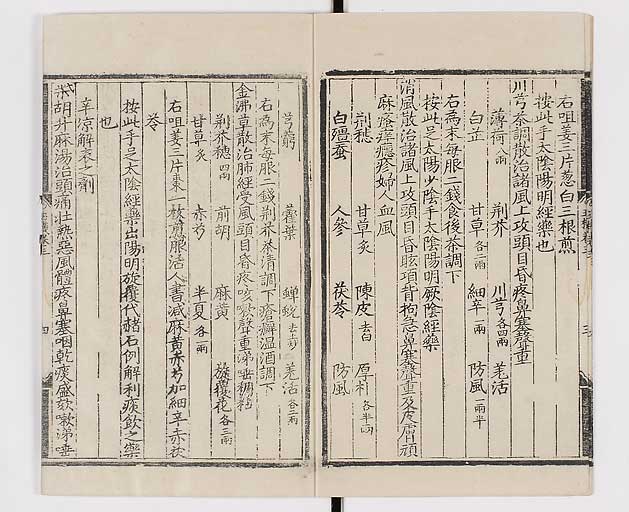 右㕮咀姜三片葱白三根煎
按此手太陰陽明經藥也
川芎茶調散治諸風上攻頭目昏疼鼻塞聲重
薄荷八兩 荆芥 川芎各四兩 羌活
白芷 甘草各二兩 細辛一兩 防風一兩半
右為末每服二錢食後茶調下
按此足太陽少陰手太陰陽明厥陰經藥
消風散治諸風上攻頭目昏眩項背拘急鼻塞聲重及皮膚頑
麻瘙痒癮疹婦人血風
荆穗 甘草炙 陳皮去白 厚朴各半兩
白殭蚕 人參 茯苓 防風
芎藭 藿葉 蟬蛻去土 羌活各二兩
右為末每服二錢荆芥茶清調下瘡癬温酒調下
金沸草散治肺經受風頭目昏疼咳嗽聲重涕唾稠粘
荆芥穗四兩 前胡 麻黄 旋覆花各三兩
甘草炙 赤芍 半夏各一兩
右咀姜三片棗一枚煎服活人書减麻黄赤芍加細辛赤茯
苓
按此手足太陰經藥出陽明旋覆代赭石例解利痰飲之藥
也
辛凉解表之劑
柴胡升麻湯治頭痛壯熱惡風體疼鼻塞咽乾痰盛欬嗽涕唾
三
四